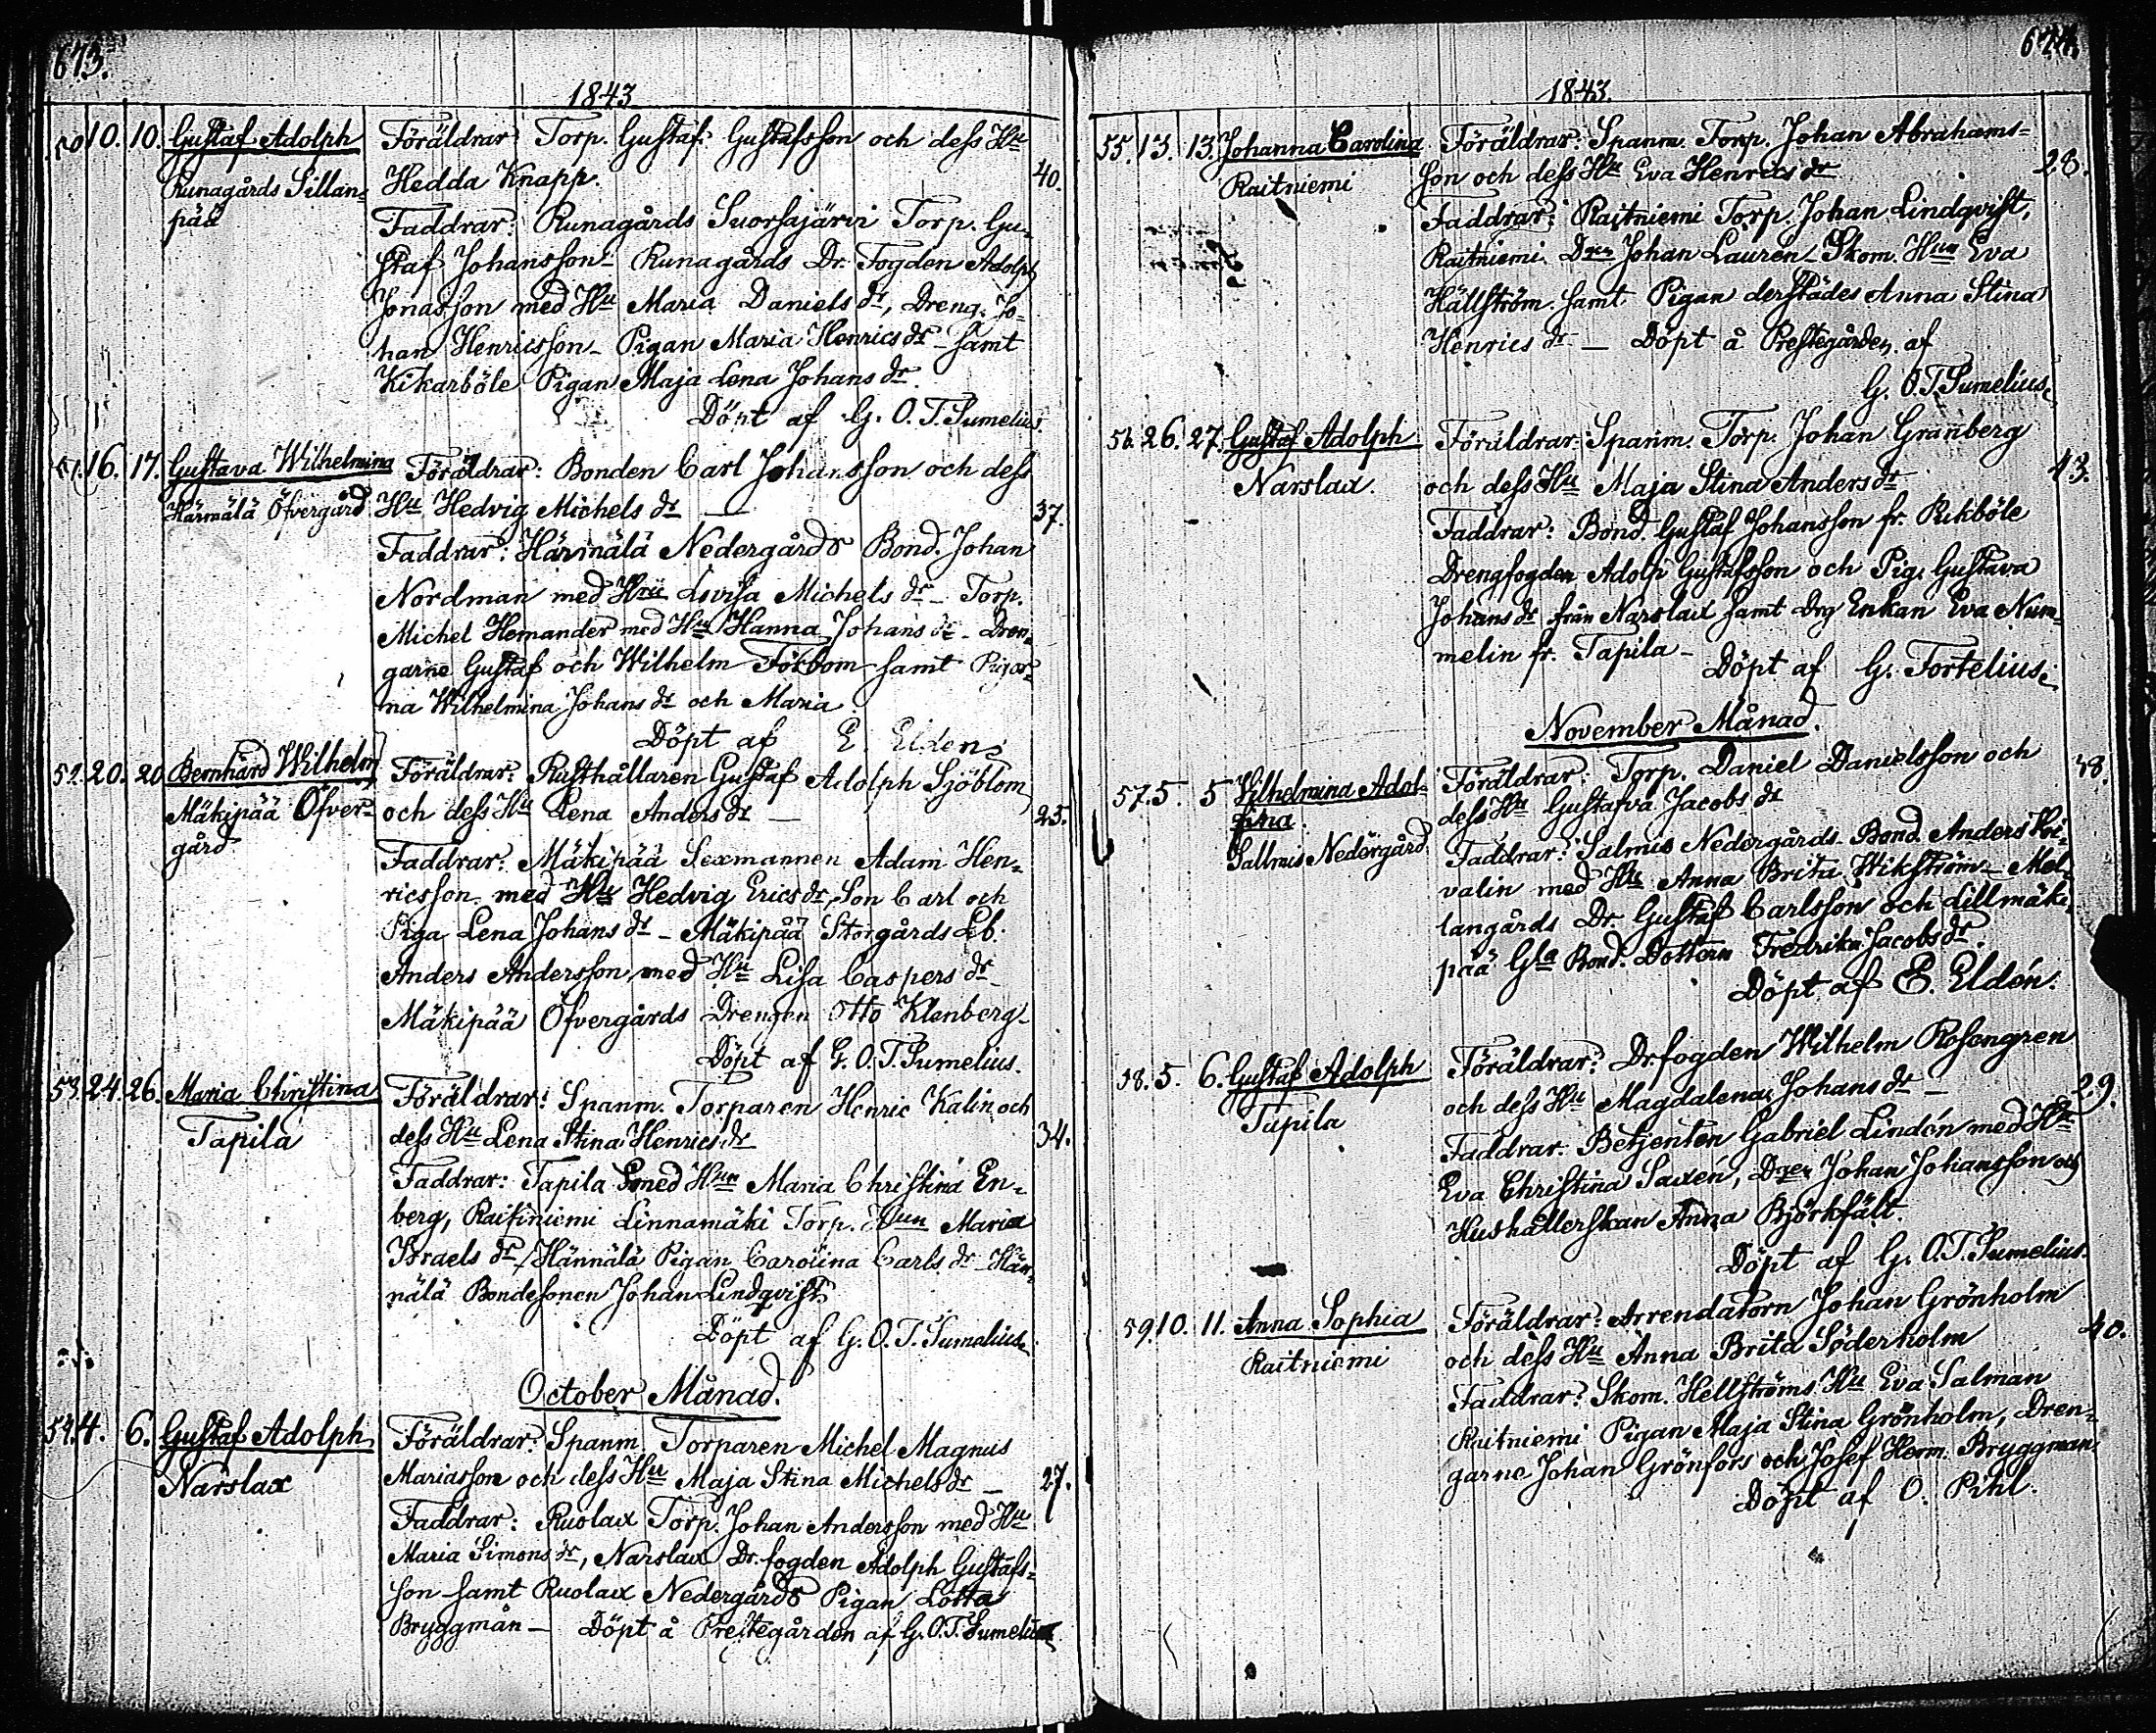 673.
1843
50 10. 10. Gustaf Adolph Föräldrar Torp. Gustaf Gustafsson och dess Hu
Runagårds Sillan- Hedda Knapp. 40.
pää Faddrar: Runagårds Suorsajärvi Torp. Gu-
staf Johansson - Runagårds Dr. Fogden Adolph
Jonasson med Hu Maria Daniels dr, Dreng. Jo-
han Henricsson - Pigan Maria Henrics dr - samt
Kikarböle Pigan Maja Lena Johans dr.
Döpt af G. O. T. Sumelius
51. 16. 17. Gustava Wilhelmina Föräldrar: Bonden Carl Johansson och dess
Härmälä Öfvergård Hu Hedvig Michels dr — 37.
Faddrar: Härmälä Nedergårds Bond. Johan
Nordman med Hru Lovisa Michels dr - Torp.
Michel Hemander med Hu Hanna Johans dr - Dren-
garne Gustaf och Wilhelm Förbom samt Pigor-
na Wilhelmina Johans dr och Maria
Döpt af E. Elden
52. 20. 20 Bernhard Wilhelm Föräldrar: Rusthållaren Gustaf Adolph Sjöblom
Mäkipää Öfver- och dess Hu Lena Anders dr — 25.
gård
Faddrar: Mäkipää Sexmannen Adam Hen-
ricsson med Hu Hedvig Erics dr, Son Carl och
Piga Lena Johans dr - Mäkipää Storgårds Lb.
Anders Andersson med Hu Lisa Caspers dr -
Mäkipää Öfvergårds Drengen Otto Klenberg -
Döpt af G. O. T. Sumelius.
53. 24. 26. Maria Christina Föräldrar: Spanm. Torparen Henric Kalin och
Tapila dess Hu Lena Stina Henrics dr 34.
Faddrar: Tapila Smed Hun Maria Christina En-
berg, Raitiniemi Linnamäki Torp. Hun Maria
Israels dr, Hännälä Pigan Carolina Carls dr - Hän-
nälä Bondesonen Johan Lindqvist
Döpt af G. O. T. Sumelius
October Månad.
54. 4. 6. Gustaf Adolph Föräldrar: Spanm. Torparen Michel Magnus
Närslax Mariasson och dess Hu Maja Stina Michels dr — 27.
Faddrar: Ruolax Torp. Johan Andersson med Hu
Maria Simons dr, Narslax Dr. fogden Adolph Gustafs-
son samt Ruolax Nedergårds Pigan Lotta
Bryggmän — Döpt å Prestegården af G. O. T. Sumelius
674.
1843.
55. 13. 13. Johanna Carolina Föräldrar: Spanm. Torp. Johan Abrahams-
Raitniemi son och dess Hu Eva Henrics dr 28.
Faddrar: Raitniemi Torp. Johan Lindqvist,
Raitniemi Dren Johan Lauren - Skom. Hun Eva
Hällström samt Pigan derstädes Anna Stina
Henrics dr — Döpt å Prestegården af
G. O. T. Sumelius
56. 26. 27. Gustaf Adolph Föräldrar: Spanm. Torp. Johan Granberg
Narslax. och dess Hu Maja Stina Anders dr 43.
Faddrar: Bond. Gustaf Johansson fr. Rikböle
Drengfogden Adolf Gustafsson och Pig. Gustava
Johans dr från Narslax samt Drg Enkan Eva Num-
melin fr. Tapila - Döpt af G. Fortelius.
November Månad.
57. 5. 5 Wilhelmina Adol- Föräldrar: Torp. Daniel Danielsson och 38.
fina dess Hu Gustafva Jacobs dr
Sallmis Nedergård Faddrar: Salmis Nedergårds Bond. Anders Koi-
valin med Hu Anna Brita Wikström - Mel-
langårds Dr. Gustaf Carlsson och Lillmäki-
pää Gla Bond. Dottern Fredrika Jacobs dr.
Döpt af E. Eldén.
58. 5. 6. Gustaf Adolph Föräldrar: Dr fogden Wilhelm Rosengren
Tapila och dess Hu Magdalena Johans dr — 29.
Faddrar: Betjenten Gabriel Lindén med Hu
Eva Christina Saxén, Dren Johan Johansson och
Hushållerskan Anna Björkfält.
Döpt af G. O. T. Sumelius.
59. 10. 11. Anna Sophia Föräldrar: Arrendatorn Johan Grönholm
Raitniemi och dess Hu Anna Brita Söderholm 40.
Faddrar: Skom. Hellströms Hu Eva Salman
Raitniemi Pigan Maja Stina Grönholm, Dren-
garne Johan Grönfors och Josef Herm. Bryggman
Döpt af O. Pihl.